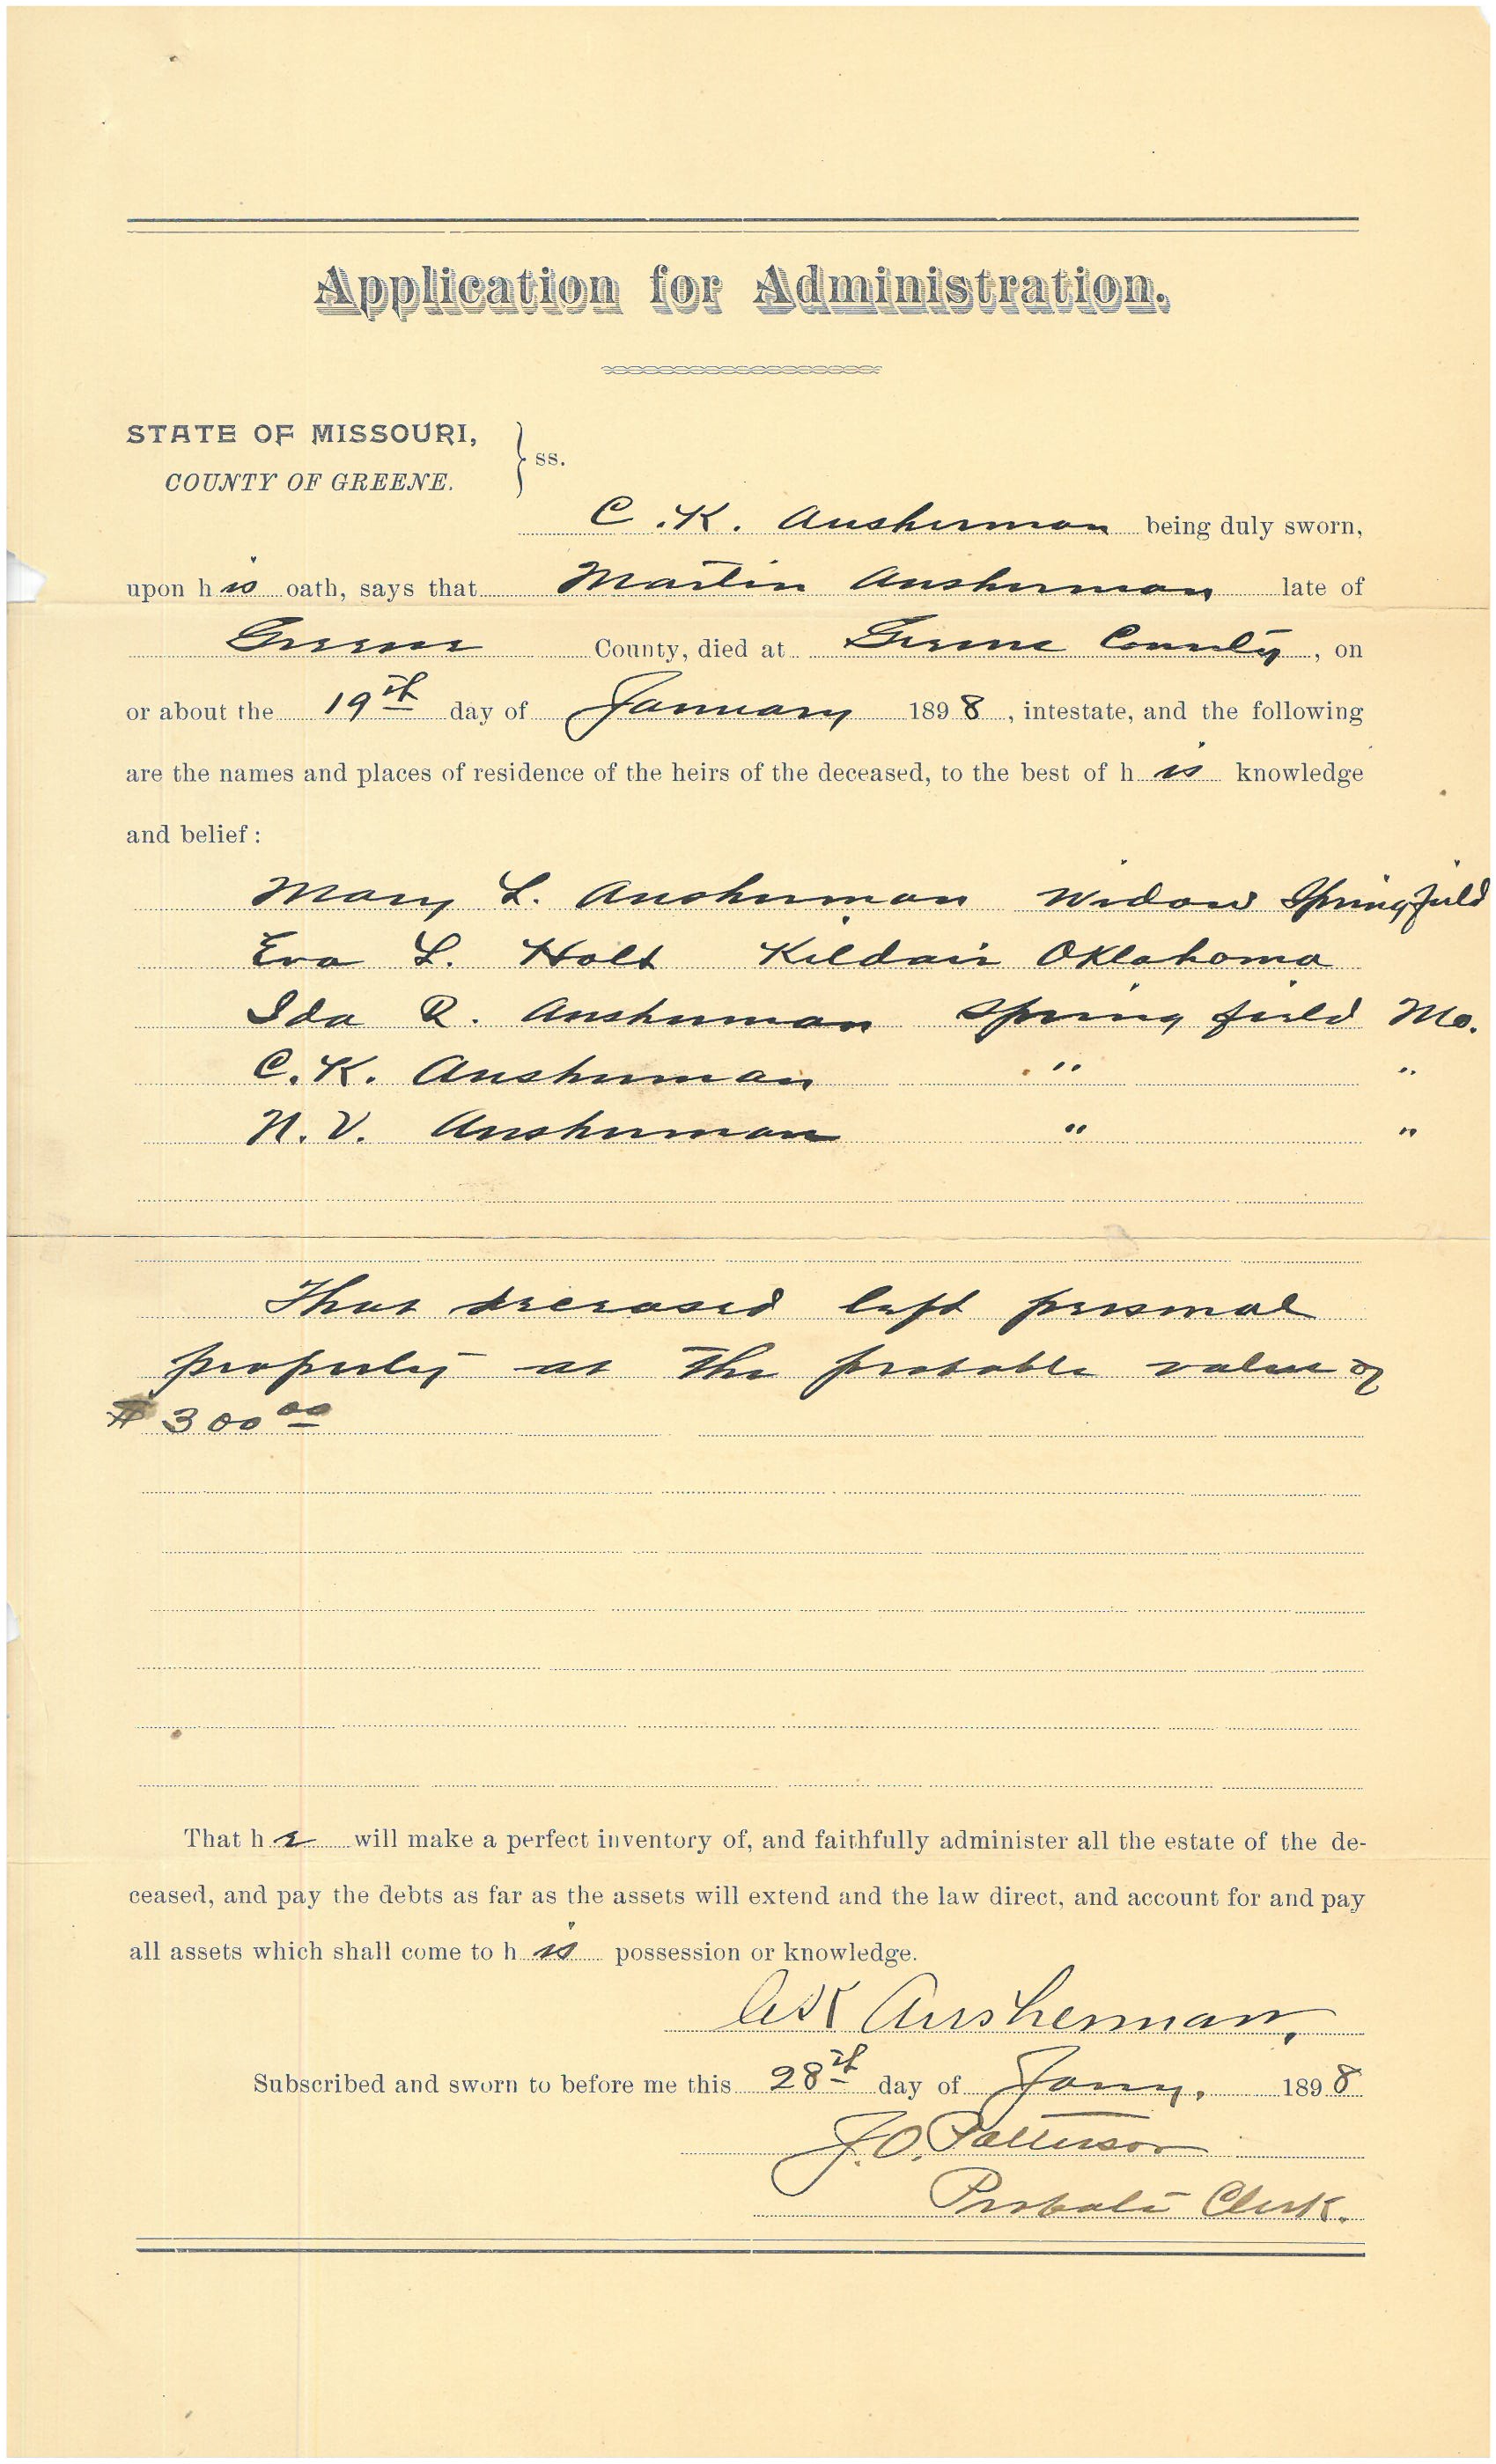 Application for Administration.
STATE OF MISSOURI,
COUNTY OF GREENE.
} ss.
C. K. Ausherman being duly sworn,
upon his oath, says that Martin Ausherman late of
Greene County, died at Greene County, on
or about the 19th day of January 1898, intestate, and the following
are the names and places of residence of the heirs of the deceased, to the best of his knowledge
and belief:
Mary L. Ausherman Widow Springfield
Eva L. Holt Kildair Oklahoma
Ida R. Ausherman Springfield Mo.
C. K. Ausherman " "
N. V. Ausherman " "
That deceased left personal
property at the probable value of
$300 00
That he will make a perfect inventory of, and faithfully administer all the estate of the de-
ceased, and pay the debts as far as the assets will extend and the law direct, and account for and pay
all assets which shall come to his possession or knowledge.
CK Ausherman,
Subscribed and sworn to before me this 28th day of Jany. 1898
J. O. Patterson
Probate Clerk.